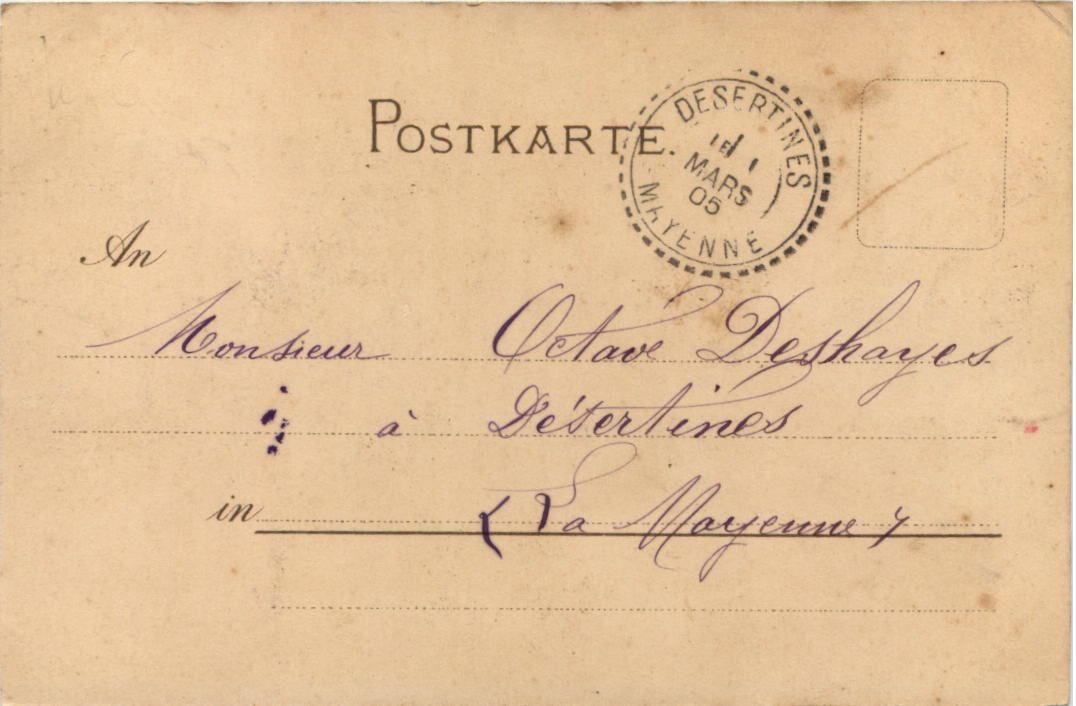 POSTKARTE.
DESERTINES
MARS
05
MAYENNE
An
Monsieur Octave Deshayes
à Désertines
in (La Mayenne)